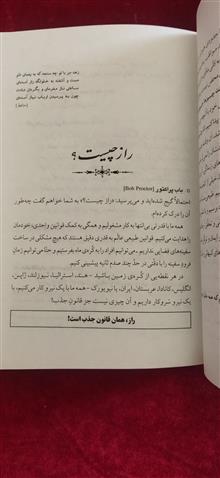 رهد من با تو چه سنجد که به یغمای دلم
مست و آشفته به خلوتگه راز آمده‌ای
چون به پرسیدن ارباب نیاز آمده‌ای
(حافظ)
راز چیست؟
باب پراکتور [Bob Proctor]
احتمالاً گیج شده‌اید و می‌پرسید: «راز چیست؟» به شما خواهم گفت چه‌طور
آن را درک کرده‌ام.
همه ما با قدرتی بی‌انتها به کار مشغولیم و همگی به کمک قوانین واحدی، خودمان
را هدایت می‌کنیم. قوانین طبیعی عالم به قدری دقیق هستند که هیچ مشکلی در ساخت
سفینه‌های فضایی نداریم. می‌توانیم افرادی را به کره‌ی ماه بفرستیم و حتا می‌توانیم زمان
فرود سفینه را با دقتی در حد چند صدم ثانیه پیشبینی کنیم.
در هر نقطه‌یی از کره‌ی زمین باشید - هند، استرالیا، نیوزلند، ژاپن،
انگلیس، کانادا، عربستان، ایران، یا نیویورک - همه ما با یک نیرو کار می‌کنیم. با
یک نیرو سروکار داریم و آن چیزی نیست جز قانون جذب!
راز، همان قانون جذب است!